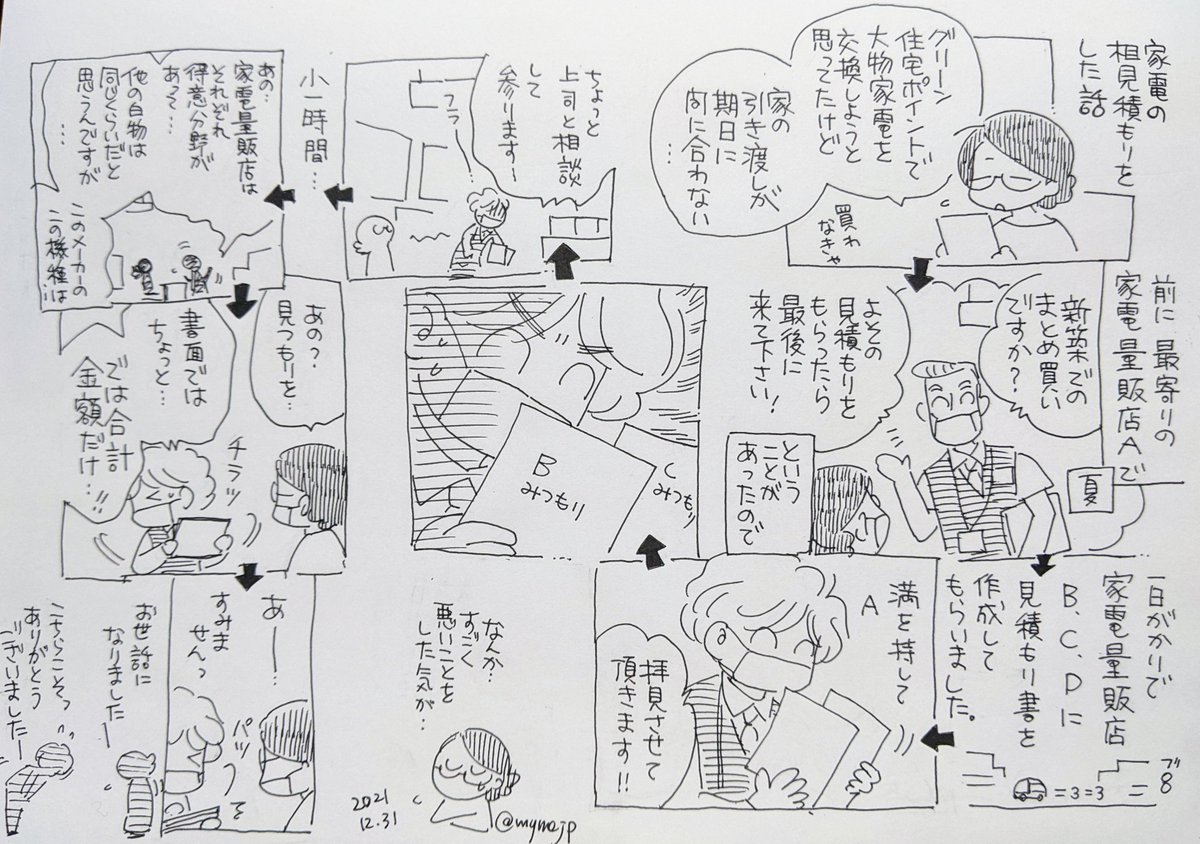 家電の
相見積もりを
した話
グリーン
住宅ポイントで
大物家電を
交換しようと
思ってたけど
家の
引き渡しが
期日に
間に合わない
…
買わ
なきゃ
前に最寄りの
家電量販店Aで
夏
新築での
まとめ買い
ですか?
よその
見積もりを
もらったら
最後に
来て下さい!
という
ことが
あったので
一日がかりで
家電量販店
B、C、Dに
見積もり書を
作成して
もらいました。
満を持して
A
拝見させて
頂きます!!
B
みつもり
C
みつもり
ちょっと
上司と相談
して
参ります〜
フラ
小一時間…
あの…
家電量販店は
それぞれ
得意分野が
あって…
他の白物は
同じくらいだと
思うんですが
…
このメーカーの
この機種は…
あの?
見つもりを…
書面では
ちょっと…
では合計
金額だけ…
チラッ
あー…
すみま
せんっ
パッ
お世話に
なりましたー
こちらこそっ
ありがとう
ございましたー
なんか…
すごく
悪いことを
した気が…
2021
12.31
@mymojp